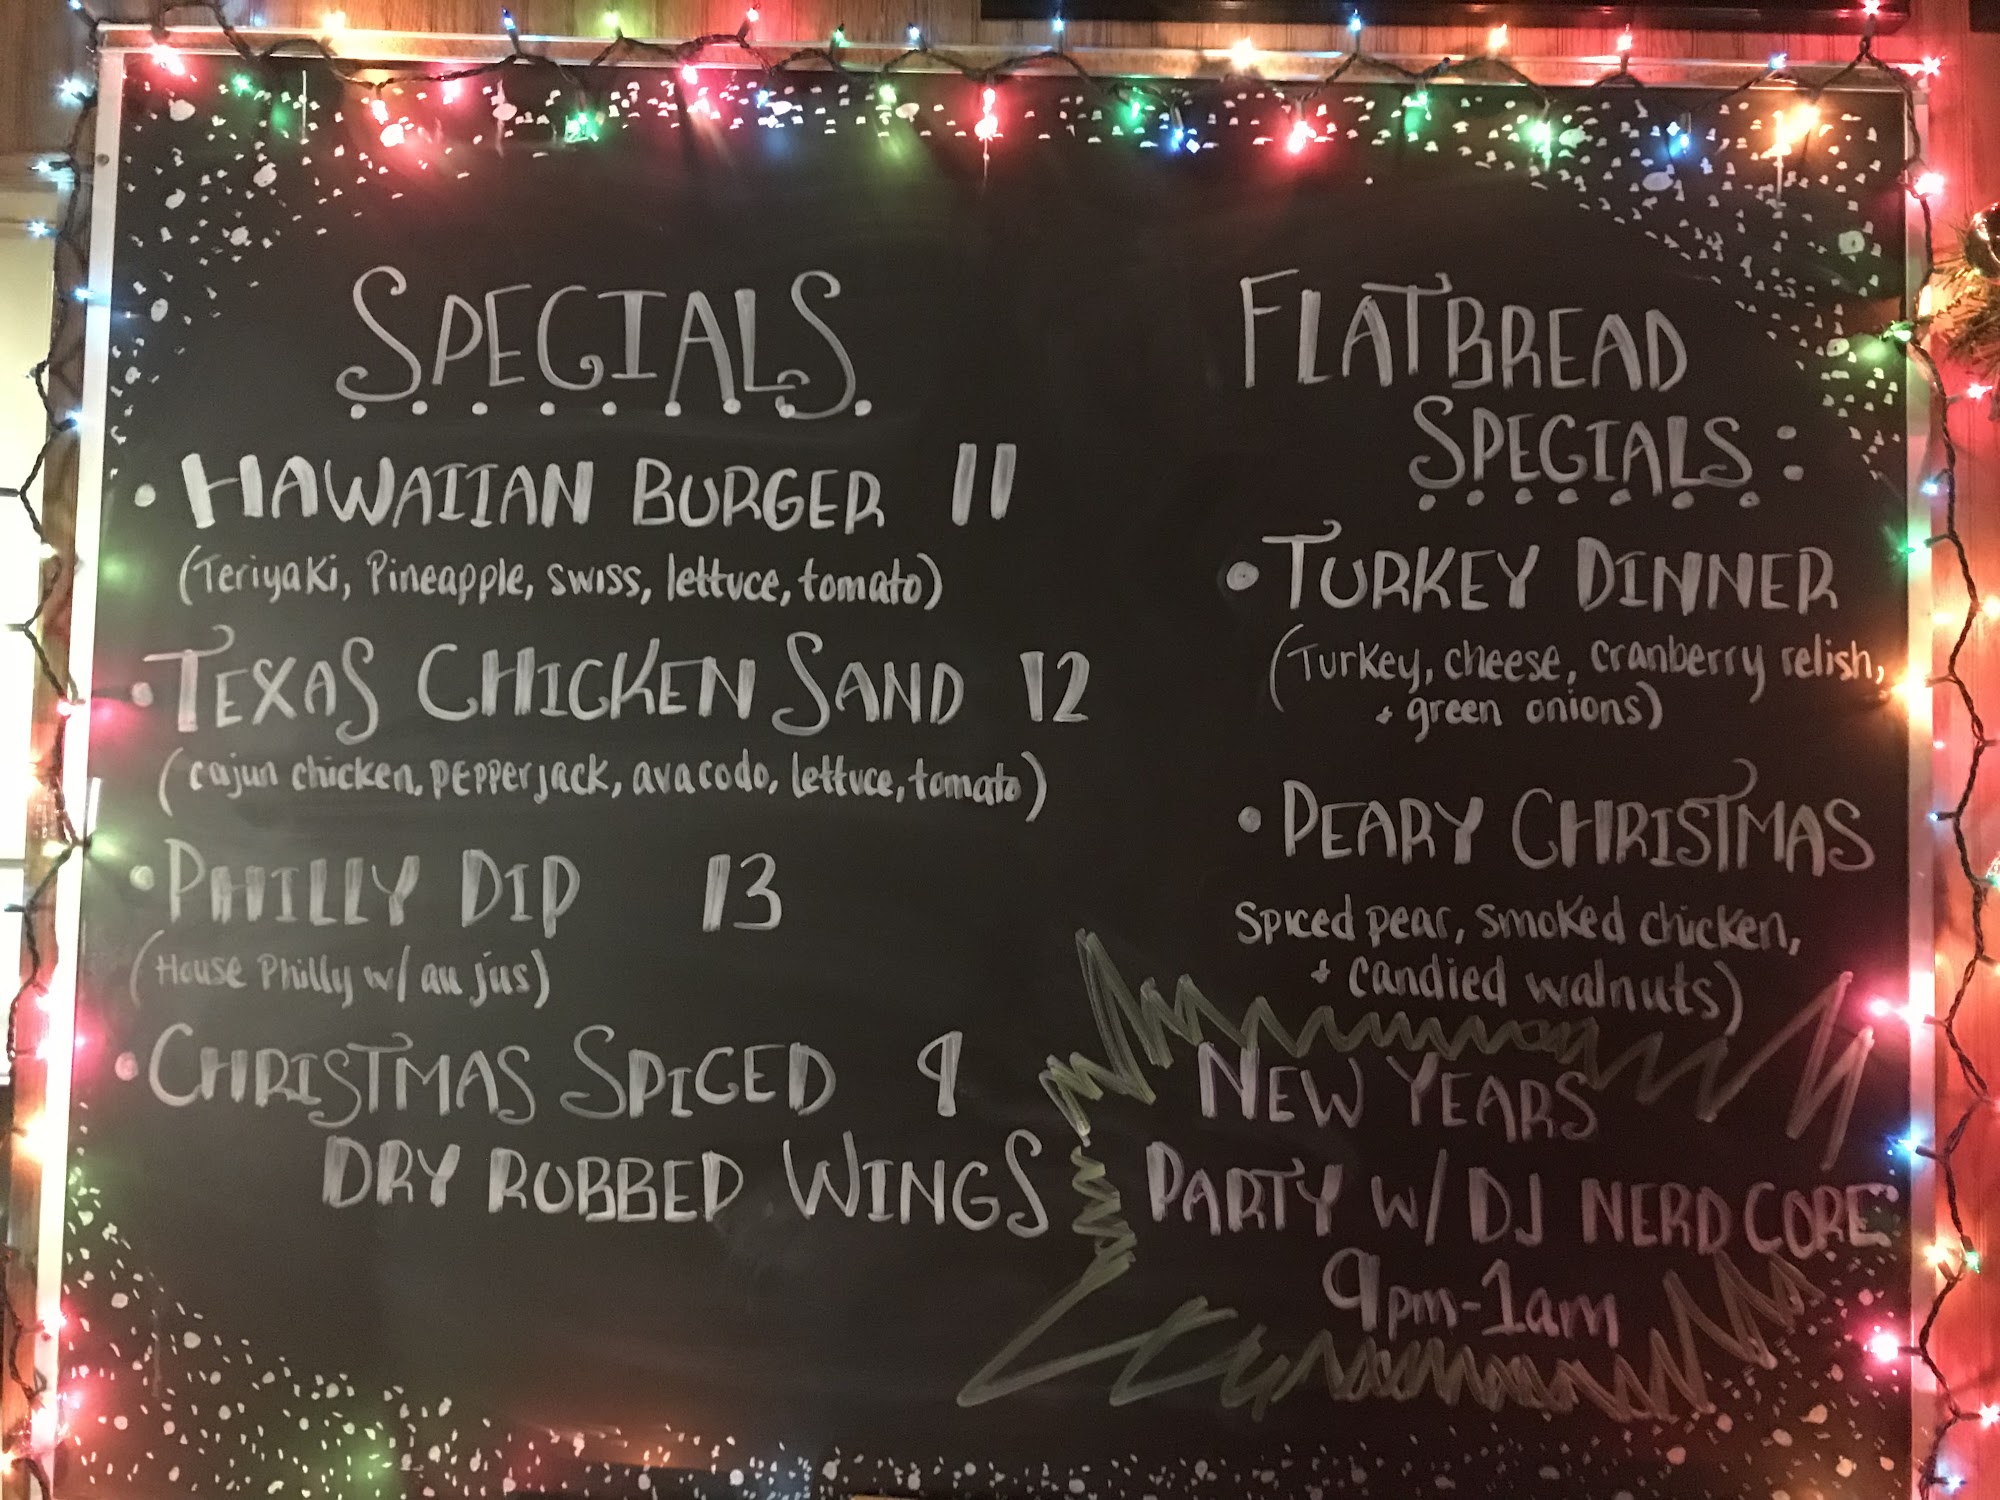 SPECIALS
• HAWAIIAN BURGER 11
(Teriyaki, Pineapple, swiss, lettuce, tomato)
• TEXAS CHICKEN SAND 12
(cajun chicken, pepper jack, avacodo, lettuce, tomato)
• PHILLY DIP 13
(House Philly w/ au jus)
• CHRISTMAS SPICED 9
DRY RUBBED WINGS
FLATBREAD
SPECIALS:
• TURKEY DINNER
(Turkey, cheese, cranberry relish,
+ green onions)
• PEARY CHRISTMAS
Spiced pear, smoked chicken,
+ candied walnuts)
NEW YEARS
PARTY w/ DJ NERD CORE
9pm-1am